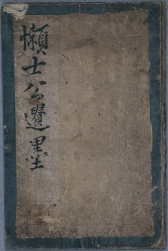 懶士公遺墨